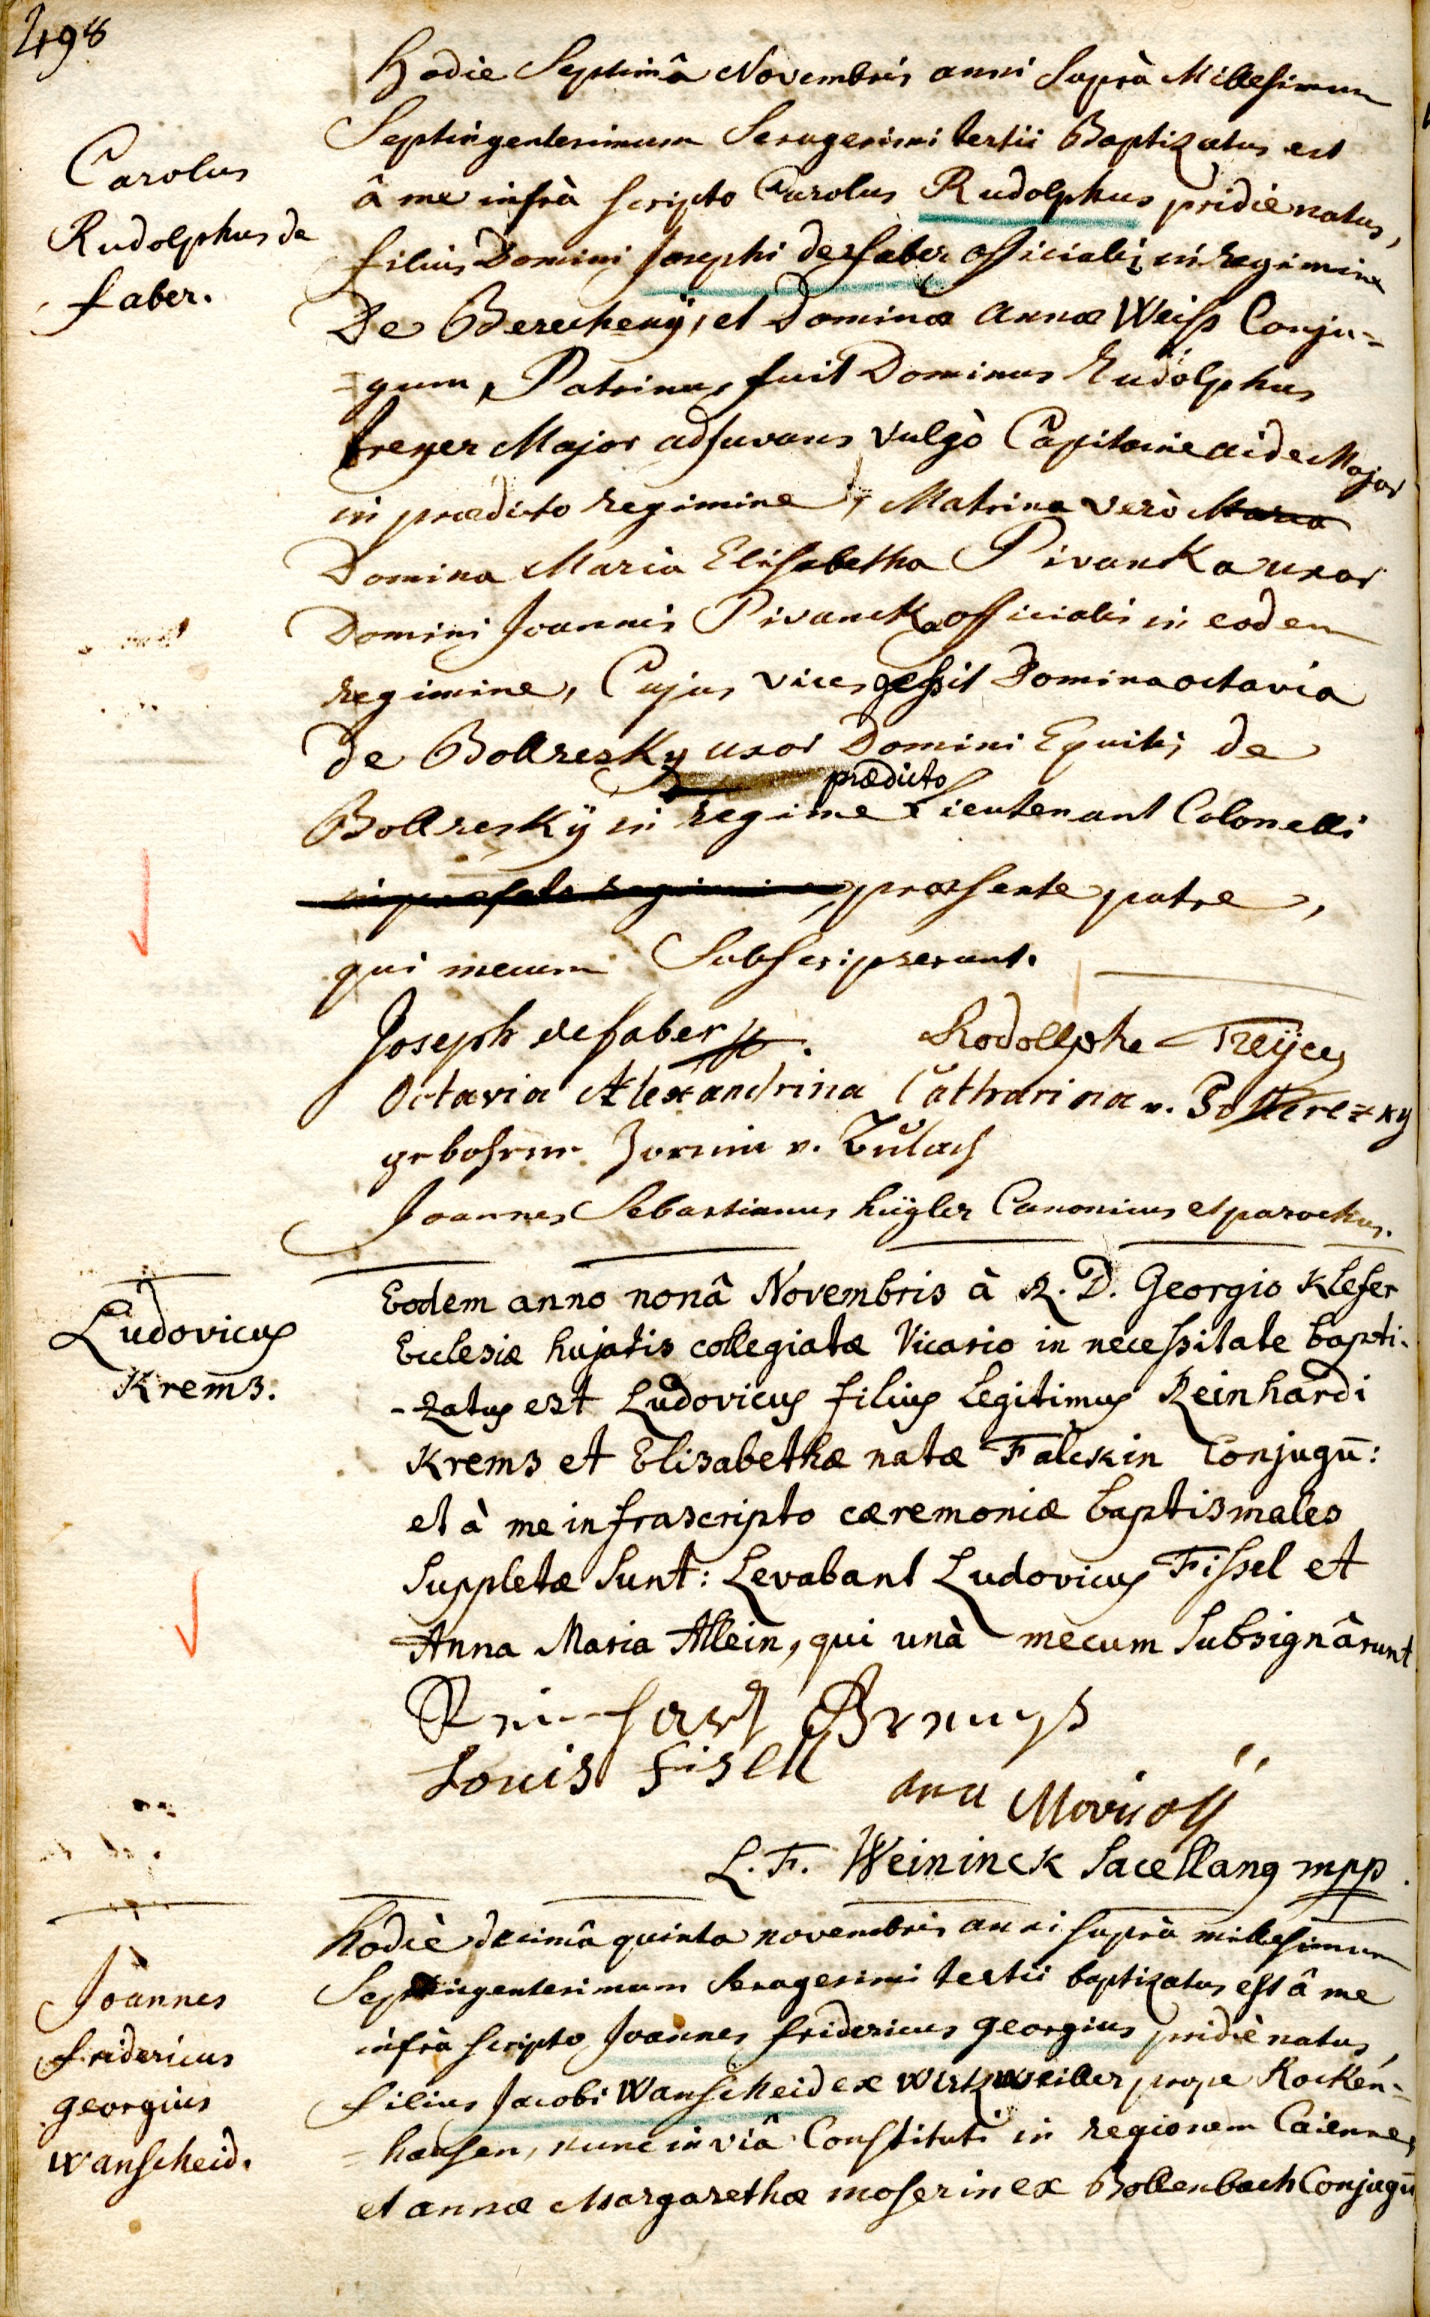 498
Carolus
Rudolphus de
faber.
Hodie Septimâ Novembris anni suprà Millesimum
Septingentesimum Sexagesimi tertii Baptizatus est
â me infrà scripto Carolus Rudolphus pridie natus,
filius Domini Josephi de faber officialis in regimine
De Berecheny, et Dominæ annæ Weiss Conju=
=gum, Patrinus fuit Dominus Rudolphus
Treyer Major adjuvans vulgò Capitaine aide Major
in prædicto regimine, Matrina verò Maria
Domina Maria Elisabetha Pivanka uxor
Domini Joannis Pivancka officialis in eodem
regimine, Cujus vices gessit Domina octavia
de Bollresky uxor Domini Equitis de
Bollreskÿ in prædicto regime Lieutenant Colonelli
in præfato regimine, præsente patre,
qui mecum Subscripserunt.
Joseph de faber. Rodollphe Treÿer
Octavia Alexandrina Catharina v. Pollerezky
gebohrne Zornin v. Bulach
Joannes Sebastianus hügler Canonicus et parochus.
Ludovicus
Krems.
Eodem anno nonâ Novembris à R. D. Georgio Klefer
Ecclesiæ hujatis collegiatæ Vicario in necessitate bapti-
-zatus est Ludovicus filius legitimus Reinhardi
Krems et Elisabethæ natæ Falckin Conjugū:
et à me infrascripto cæremoniæ baptismales
suppletæ sunt: Levabant Ludovicus Fissel et
Anna Maria Allein, qui unà mecum subsignârunt
Louis Fisell
L. F. Weininck Sacellang mpp.
Joannes
fridericus
georgius
wanscheid.
hodiè decimâ quinta novembris anni suprà millesimum
Septingentesimum Sexagesimi tertii baptizatus est â me
infrà scripto Joannes fridericus georgius pridiè natus,
filius Jacobi wanscheid ex wirtzweiller prope Rocken=
=hausen, nunc in viâ Constituti in regionem Caienne,
et annæ Margarethæ moserin ex Bollenbach Conjugū